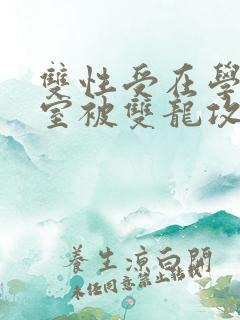 雙性受在學
室被雙龍攻
養生涼白開
未任同意禁止轉載